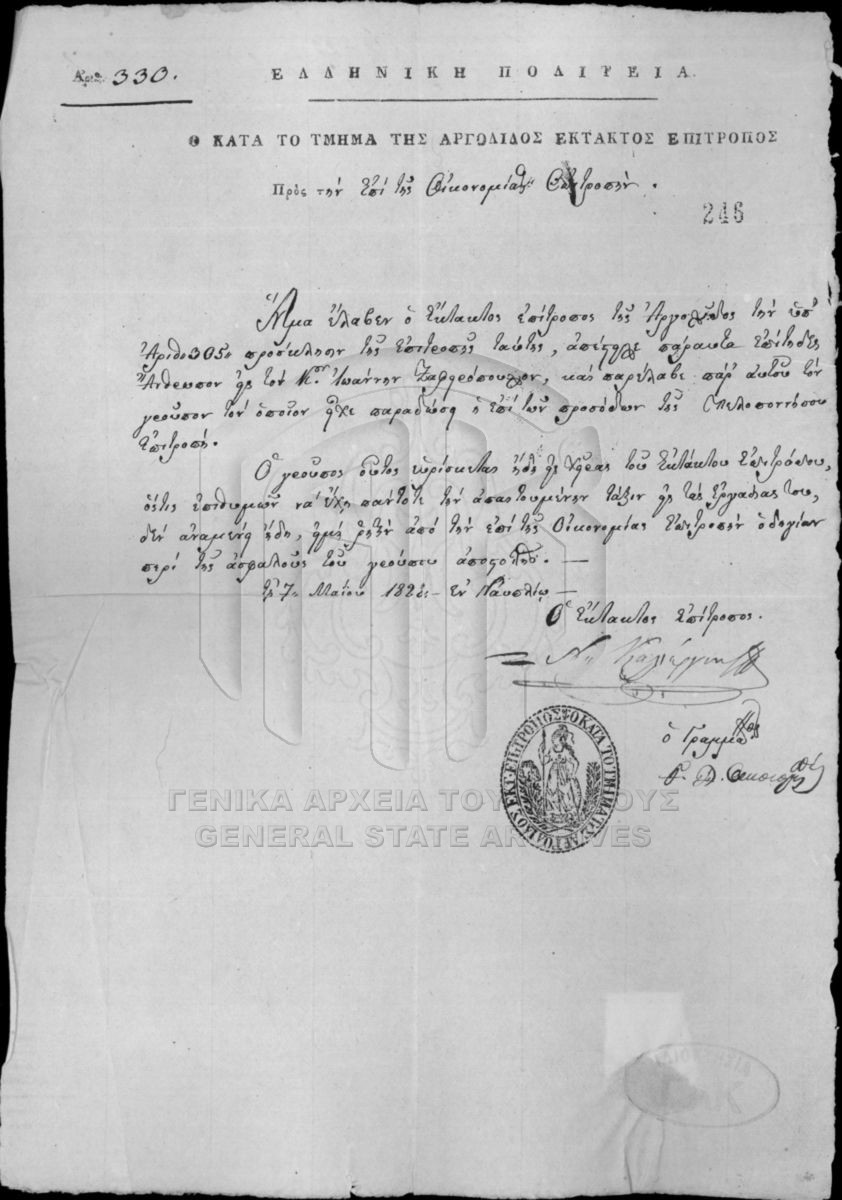 Αριθ. 330.
ΕΛΛΗΝΙΚΗ ΠΟΛΙΤΕΙΑ.
Ο ΚΑΤΑ ΤΟ ΤΜΗΜΑ ΤΗΣ ΑΡΓΟΛΙΔΟΣ ΕΚΤΑΚΤΟΣ ΕΠΙΤΡΟΠΟΣ
Πρὸς τὴν ἐπὶ τῆς Οἰκονομίας Ἐπιτροπήν.
246
Ἅμα ἔλαβεν ὁ Ἐκτακτος ἐπίτροπος τῆς Ἀργολίδος τὴν ὑπ'
Ἀριθ. 305 πρόσκλησιν τῆς Ἐπιτροπῆς ταύτης, ἀπέστειλε παραυτα ἐπίτηδες
Ἄνθρωπον εἰς τὸν Κον Ἰωάννην, καὶ παρέλαβε παρ' αὐτοῦ τὸν
γροῦπον τὸν ὁποῖον εἶχε παραδώσῃ ἡ ἐπὶ τῶν προσόδων τῆς Πελοποννήσου
Ἐπιτροπή.
Ὁ γροῦπος οὗτος εὑρίσκεται ἤδη εἰς χεῖρας τοῦ Ἐκτάκτου Ἐπιτρόπου,
ὅστις ἐπιθυμῶν νὰ ἔχῃ πάντοτε τὴν ἀπαιτουμένην τάξιν εἰς τὰς ἐργασίας του,
δὲν ἀναμένει ἤδη, εἰμὴ ῥητὴν ἀπὸ τὴν ἐπὶ τῆς Οἰκονομίας Ἐπιτροπὴν ὁδηγίαν
περὶ τῆς ἀσφαλοῦς τοῦ γρούπου ἀποστολῆς. —
τῇ 7 Μαΐου 1828 — Ἐν Ναυπλίῳ —
Ὁ Ἔκτακτος Ἐπίτροπος.
Ν. Καλλέργης
ὁ Γραμμα
ΕΚΤ. ΕΠΙΤΡΟΠΟΣ Ο ΚΑΤΑ ΤΟ ΤΜΗΜΑ ΤΗΣ ΑΡΓΟΛΙΔΟΣ
ΓΕΝΙΚΑ ΑΡΧΕΙΑ ΤΟΥ ΚΡΑΤΟΥΣ
GENERAL STATE ARCHIVES